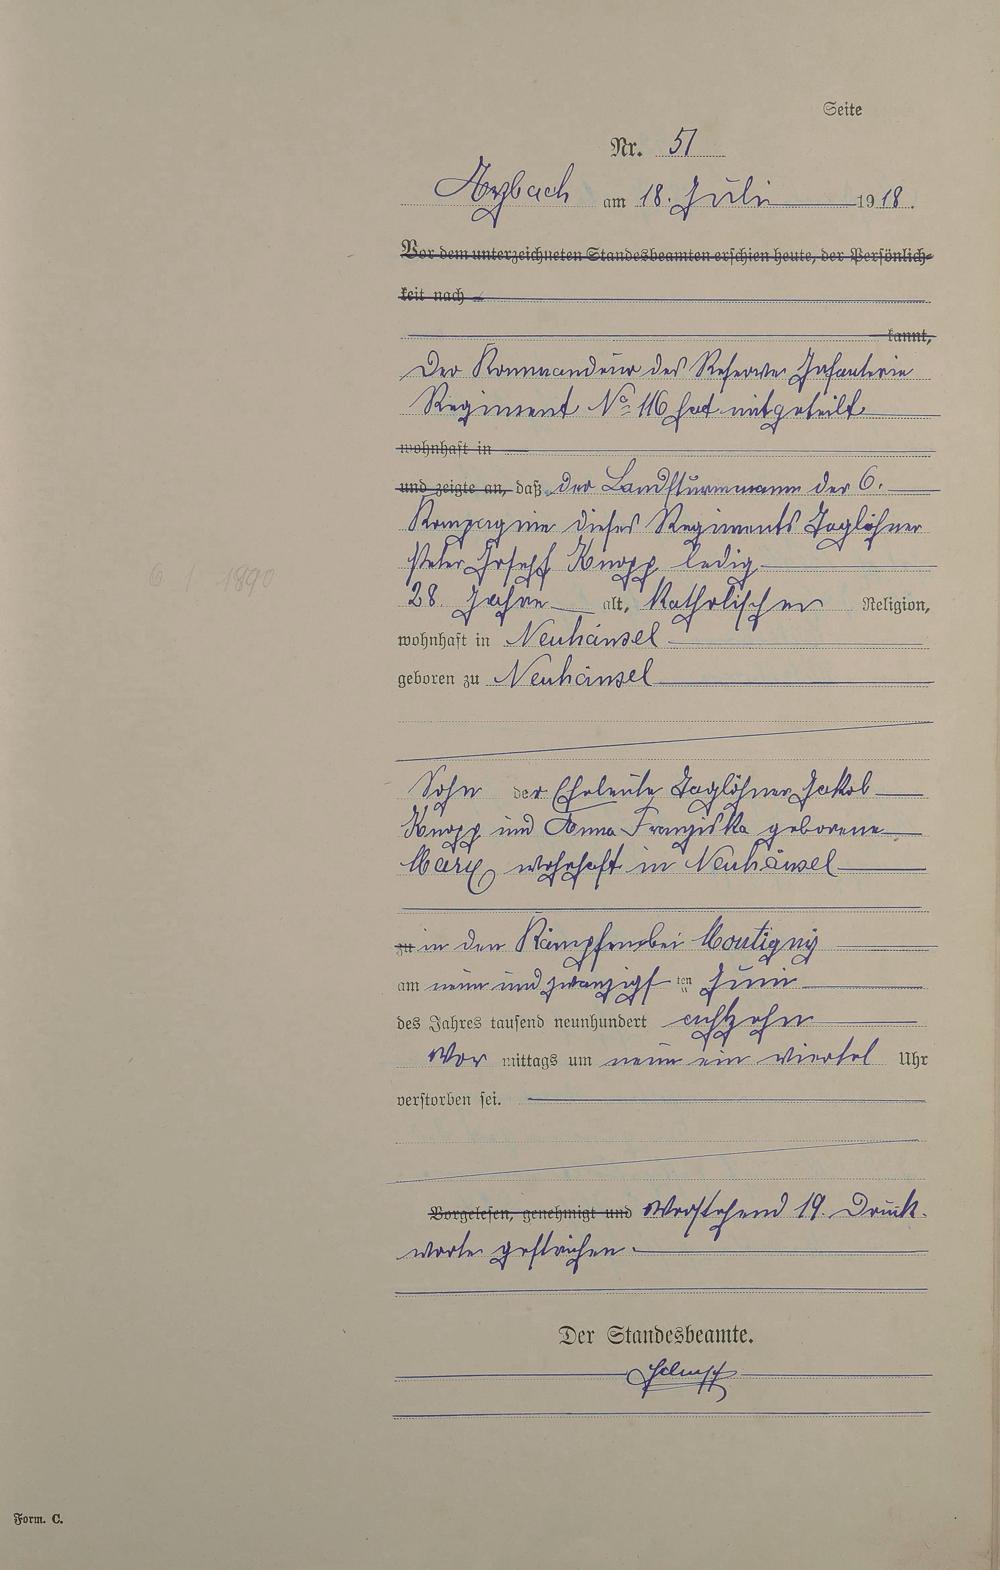 Seite
Nr. 51
Arzbach am 18. Juli 1918.
Vor dem unterzeichneten Standesbeamten erschien heute, der Persönlich-
keit nach
kannt,
Der Kommandeur des Reserve Infanterie
Regiment No 116 hat mitgeteilt
wohnhaft in
und zeigte an, daß der Landsturmmann der 6.
Kompagnie dieses Regiments Taglöhner
Peter Joseph Knopp ledig
6 / 1 1890
28 Jahre alt, katholischer Religion,
wohnhaft in Neuhäusel
geboren zu Neuhäusel
Sohn der Eheleute Taglöhner Jakob
Knopp und Anna Franziska geborene
Marx wohnhaft in Neuhäusel
zu in den Kämpfen bei Montigny
am neun und zwanzigsten Juni
des Jahres tausend neunhundert achtzehn
Vor mittags um neun ein viertel Uhr
verstorben sei.
Vorgelesen, genehmigt und Vorstehend 19. Druck-
worte gestrichen.
Der Standesbeamte.
Form. C.